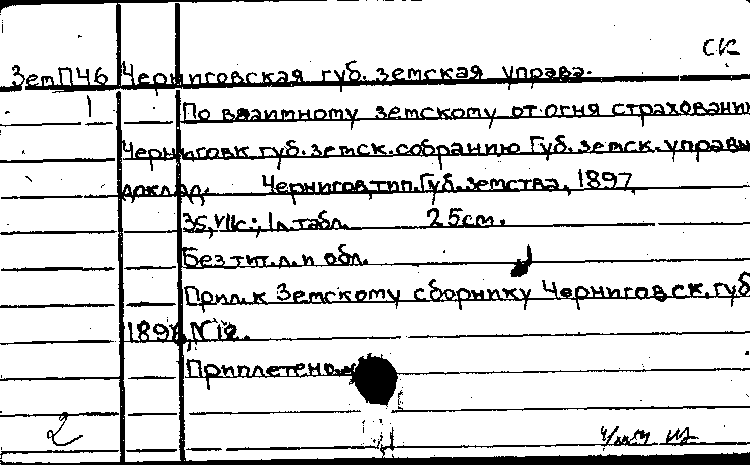 СК
ЗемП46 Черниговская губ. земская управа.
1 По взаимному земскому от огня страховании
Черниговк. губ. земск. собранию Губ. земск. управы
доклад. Чернигов, тип. Губ. земства, 1897
35, VII с.; 1 л. табл. 25 см.
Без тит. л. и обл.
Прил. к Земскому сборнику Черниговск. губ
189 , N 12.
Приплетено
2